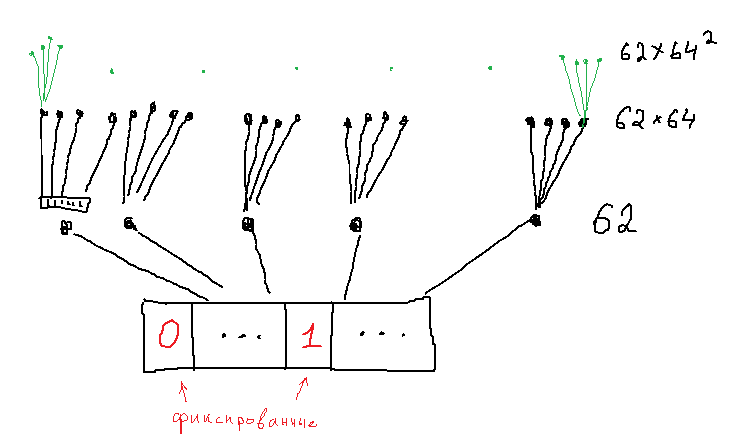 62×64²
62×64
62
0 ... 1 ...
фиксированные